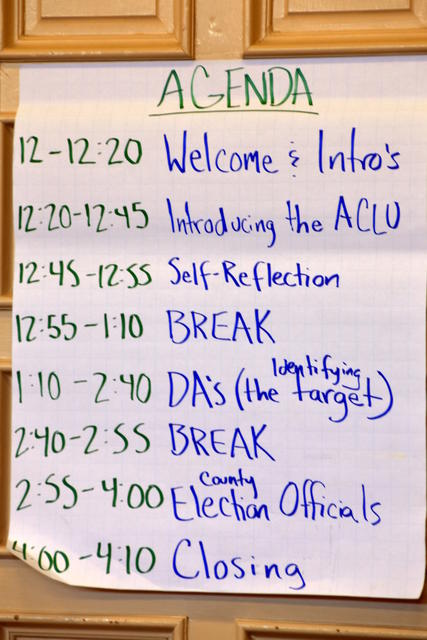 AGENDA
12-12:20 Welcome & Intro's
12:20-12:45 Introducing the ACLU
12:45-12:55 Self-Reflection
12:55-1:10 BREAK
1:10-2:40 DA's (the Identifying target)
2:40-2:55 BREAK
2:55-4:00 County Election Officials
4:00-4:10 Closing